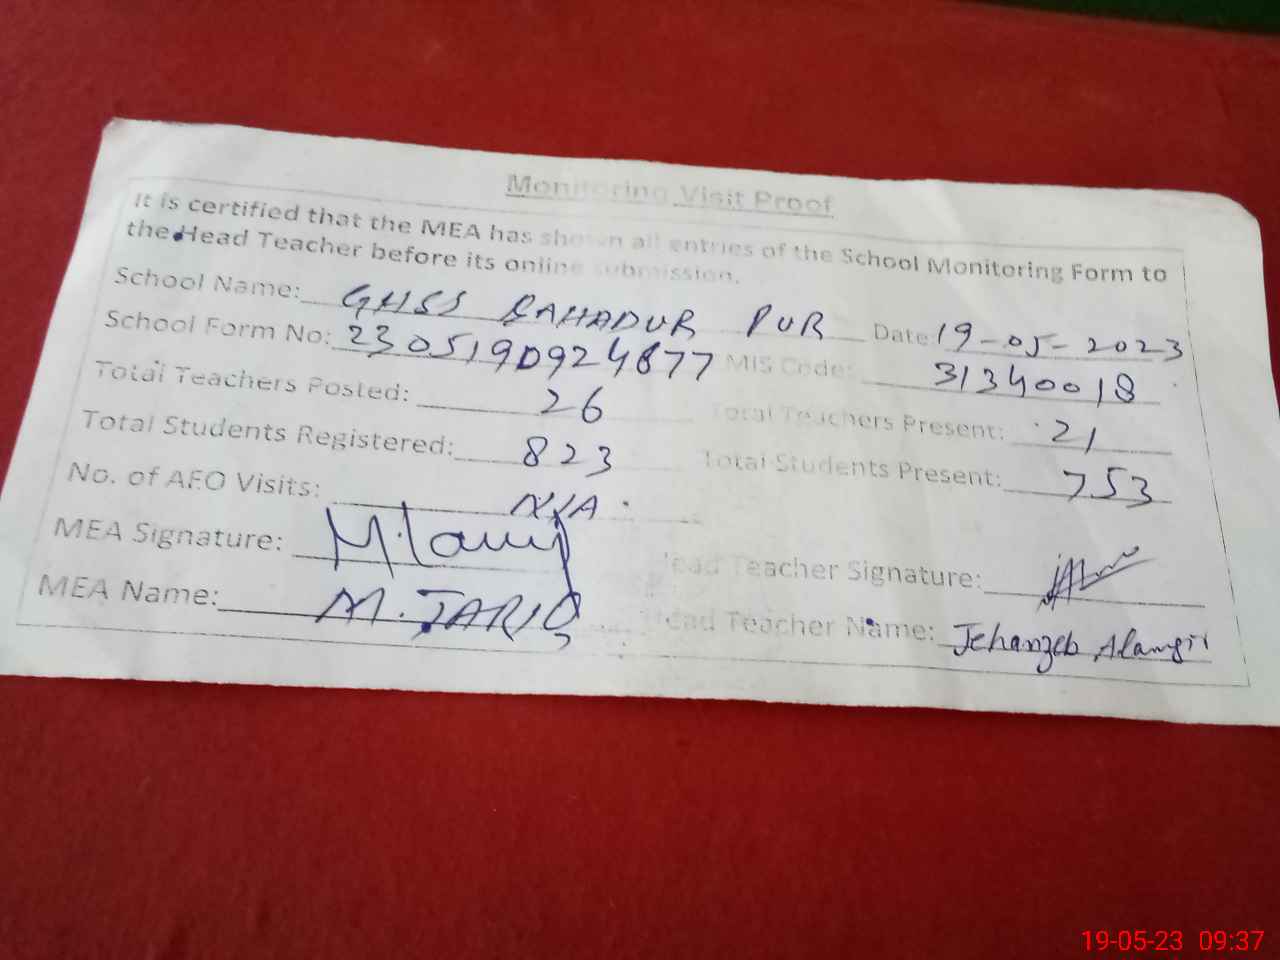 Monitoring Visit Proof
It is certified that the MEA has shown all entries of the School Monitoring Form to
the Head Teacher before its online submission.
School Name: GHSS BAHADUR PUR Date: 19-05-2023
School Form No: 2305190924877 MIS Code: 31340018
Total Teachers Posted: 26 Total Teachers Present: 21
Total Students Registered: 823 Total Students Present: 753
No. of AEO Visits: N/A
MEA Signature: M.Tariq Head Teacher Signature:
MEA Name: M. TARIQ Head Teacher Name: Jehanzeb Alamgir
19-05-23 09:37